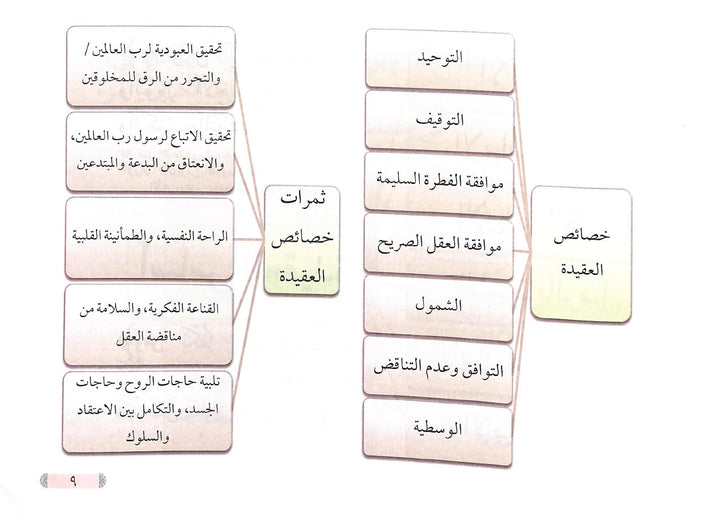 خصائص
العقيدة
التوحيد
التوقيف
موافقة الفطرة السليمة
موافقة العقل الصريح
الشمول
التوافق وعدم التناقض
الوسطية
ثمرات
خصائص
العقيدة
تحقيق العبودية لرب العالمين /
والتحرر من الرق للمخلوقين
تحقيق الاتباع لرسول رب العالمين،
والانعتاق من البدعة والمبتدعين
الراحة النفسية، والطمأنينة القلبية
القناعة الفكرية، والسلامة من
مناقضة العقل
تلبية حاجات الروح وحاجات
الجسد، والتكامل بين الاعتقاد
والسلوك
٩